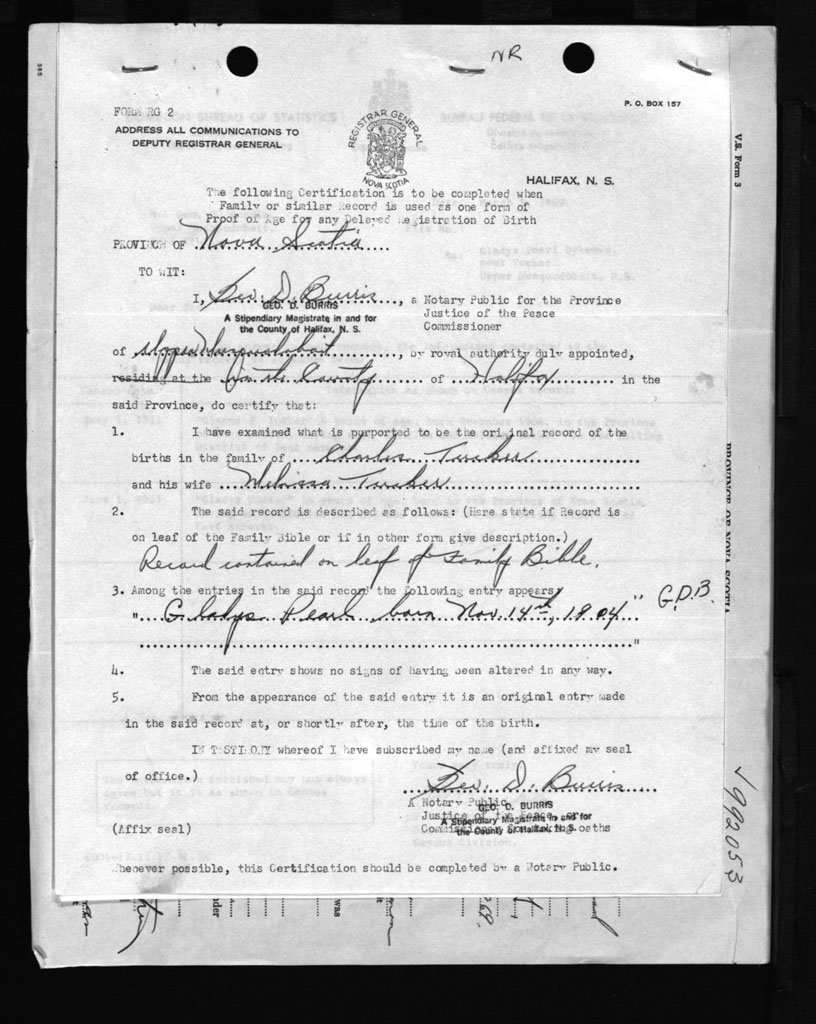 NR
FORM RG 2
P. O. BOX 157
ADDRESS ALL COMMUNICATIONS TO
DEPUTY REGISTRAR GENERAL
REGISTRAR GENERAL
NOVA SCOTIA
HALIFAX, N. S.
V.S. Form 3
The following Certification is to be completed when
Family or similar Record is used as one form of
Proof of Age for any Delayed Registration of Birth
PROVINCE OF Nova Scotia
TO WIT:
I, Geo. D. Burris, a Notary Public for the Province
GEO. D. BURRIS
Justice of the Peace
A Stipendiary Magistrate in and for
the County of Halifax, N. S.
Commissioner
of Upper Musquodoboit, by royal authority duly appointed,
residing at the in the County of Halifax in the
said Province, do certify that:
1. I have examined what is purported to be the original record of the
births in the family of Charles Tucker
and his wife Melissa Tucker
2. The said record is described as follows: (Here state if Record is
on leaf of the Family Bible or if in other form give description.)
Record contained on leaf of Family Bible.
3. Among the entries in the said record the following entry appears
"Gladys Pearl born Nov. 14th, 1904" G.D.B.
"
4. The said entry shows no signs of having been altered in any way.
5. From the appearance of the said entry it is an original entry made
in the said record at, or shortly after, the time of the birth.
IN TESTIMONY whereof I have subscribed my name (and affixed my seal
of office.)
Geo. D. Burris
A Notary Public
GEO. D. BURRIS
Justice of the Peace or
A Stipendiary Magistrate in and for
the County of Halifax, N. S.
(Affix seal)
Whenever possible, this Certification should be completed by a Notary Public.
PROVINCE OF NOVA SCOTIA
992053
nder
was